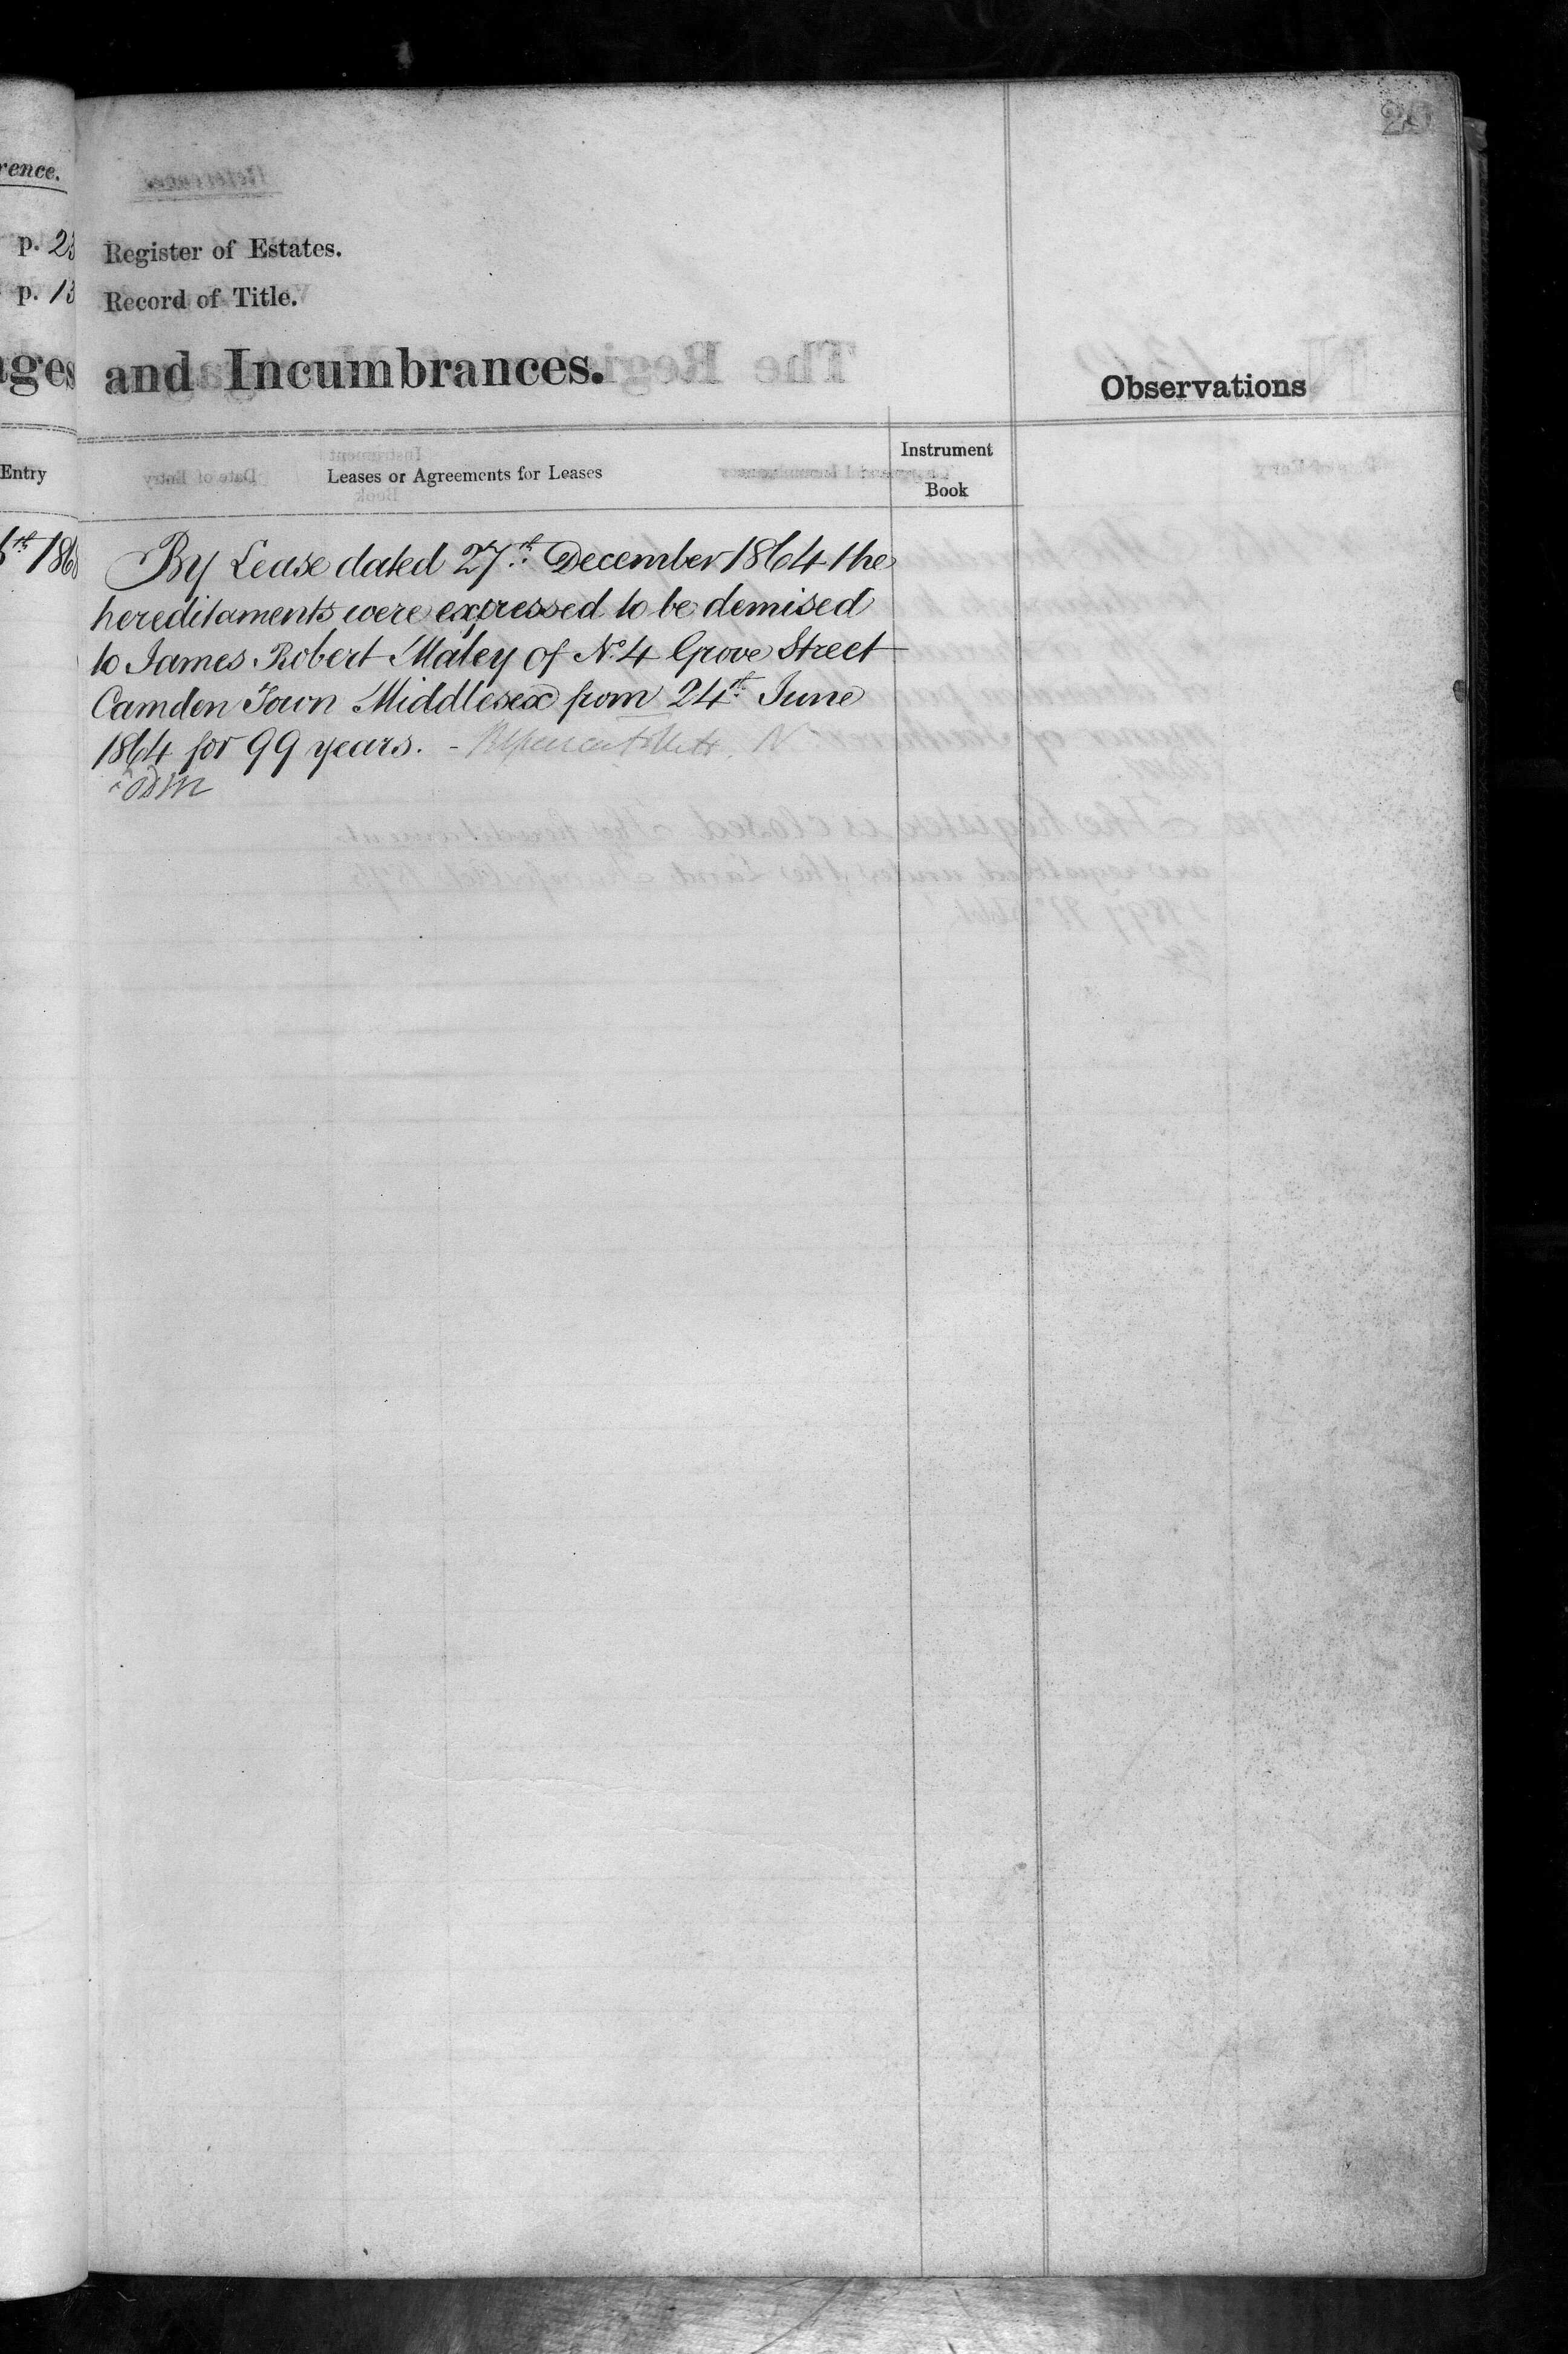 20
rence.
p. 23 Register of Estates.
p. 13 Record of Title.
ges and Incumbrances.
Observations
Entry
Leases or Agreements for Leases
Instrument
Book
By Lease dated 27th December 1864 the
hereditaments were expressed to be demised
to James Robert Maley of No. 4 Grove Street
Camden Town Middlesex from 24th June
1864 for 99 years. -